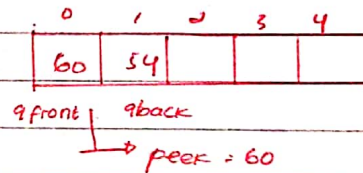 0 1 2 3 4
60 54
qfront qback
peek = 60